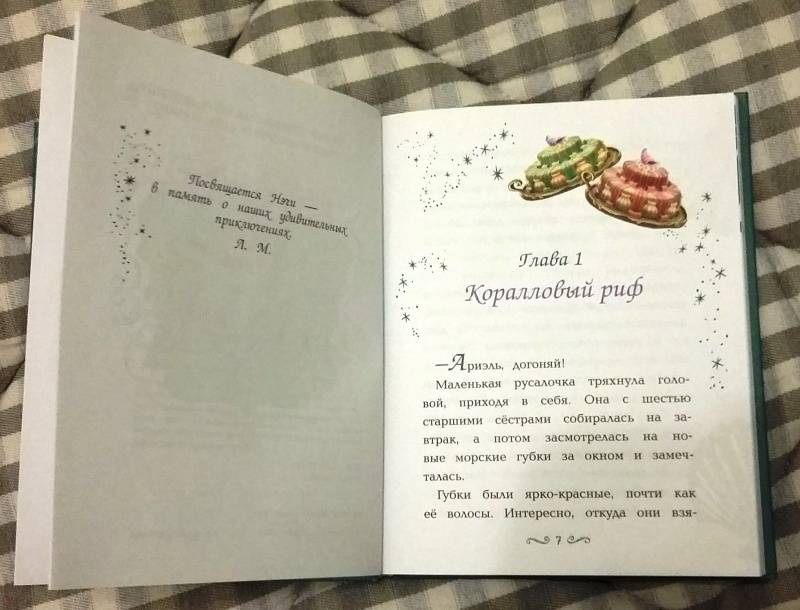 Посвящается Нэчи —
в память о наших удивительных
приключениях.
Л. М.
Глава 1
Коралловый риф
—Ариэль, догоняй!
Маленькая русалочка тряхнула голо-
вой, приходя в себя. Она с шестью
старшими сёстрами собиралась на за-
втрак, а потом засмотрелась на но-
вые морские губки за окном и замеч-
талась.
Губки были ярко-красные, почти как
её волосы. Интересно, откуда они взя-
7